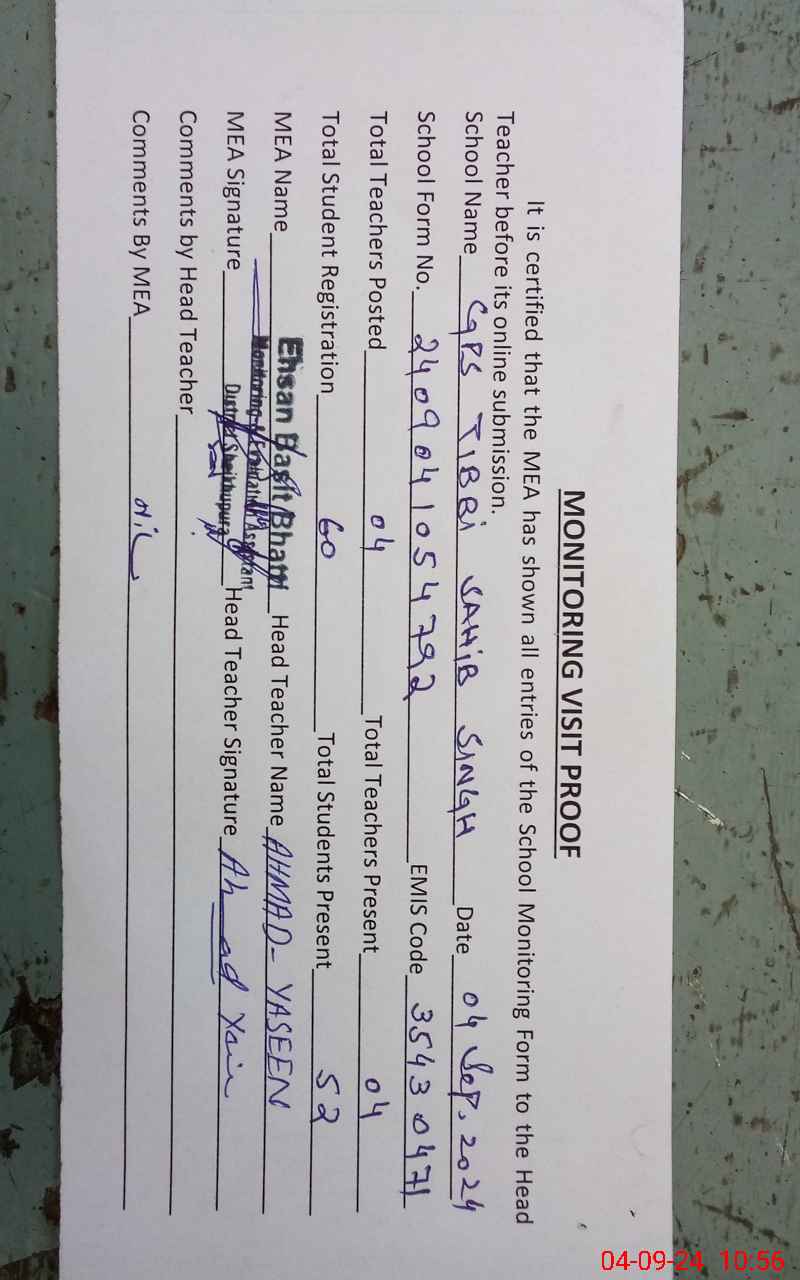 MONITORING VISIT PROOF
It is certified that the MEA has shown all entries of the School Monitoring Form to the Head
Teacher before its online submission.
School Name GPS TIBBi SAHiB SINGH Date 04 Sep. 2024
School Form No. 2409041054792 EMIS Code 35430471
Total Teachers Posted 04 Total Teachers Present 04
Total Student Registration 60 Total Students Present 52
MEA Name Ehsan Basit Bhatti Head Teacher Name AHMAD-YASEEN
Monitoring & Evaluation Assistant
MEA Signature District Sheikhupura Head Teacher Signature Ahmad Yasin
Comments by Head Teacher
Comments By MEA Nil
04-09-24 10:56